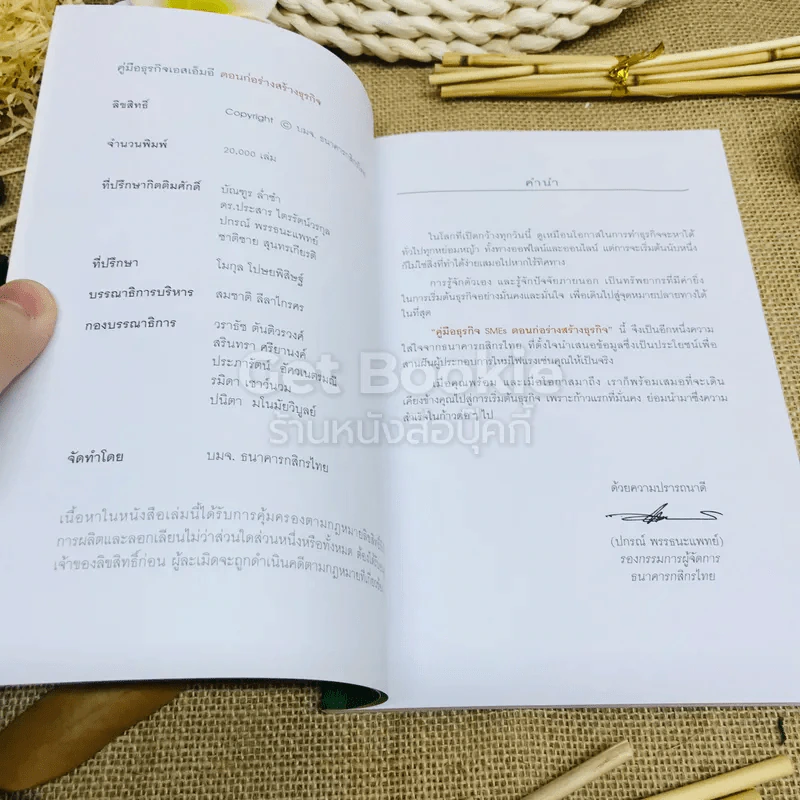 คู่มือธุรกิจเอสเอ็มอี ตอนก่อร่างสร้างธุรกิจ
ลิขสิทธิ์ Copyright © บมจ. ธนาคารกสิกรไทย
จำนวนพิมพ์ 20,000 เล่ม
ที่ปรึกษากิตติมศักดิ์ บัณฑูร ล่ำซำ
ดร.ประสาร ไตรรัตน์วรกุล
ปกรณ์ พรรธนะแพทย์
ชาติชาย สุนทรเกียรติ
ที่ปรึกษา โมกุล โปษยพิสิษฐ์
บรรณาธิการบริหาร สมชาติ ลีลาไกรศร
กองบรรณาธิการ วราธัช ตันติวรวงศ์
สรินทรา ศรียานงค์
ประภารัตน์ อัศวเนตรมณี
รมิดา เชาว์นวม
ปนิตา มโนมัยวิบูลย์
จัดทำโดย บมจ. ธนาคารกสิกรไทย
เนื้อหาในหนังสือเล่มนี้ได้รับการคุ้มครองตามกฎหมายลิขสิทธิ์
การผลิตและลอกเลียนไม่ว่าส่วนใดส่วนหนึ่งหรือทั้งหมด
เจ้าของลิขสิทธิ์ก่อน ผู้ละเมิดจะถูกดำเนินคดีตามกฎหมาย
คำนำ
ในโลกที่เปิดกว้างทุกวันนี้ ดูเหมือนโอกาสในการทำธุรกิจจะหาได้
ทั่วไปทุกหย่อมหญ้า ทั้งทางออฟไลน์และออนไลน์ แต่การจะเริ่มต้นนับหนึ่ง
ก็ไม่ใช่สิ่งที่ทำได้ง่ายเสมอไปหากไร้ทิศทาง
การรู้จักตัวเอง และรู้จักปัจจัยภายนอก เป็นทรัพยากรที่มีค่ายิ่ง
ในการเริ่มต้นธุรกิจอย่างมั่นคงและมั่นใจ เพื่อเดินไปสู่จุดหมายปลายทางได้
ในที่สุด
"คู่มือธุรกิจ SMEs ตอนก่อร่างสร้างธุรกิจ" นี้ จึงเป็นอีกหนึ่งความ
ใส่ใจจากธนาคารกสิกรไทย ที่ตั้งใจนำเสนอข้อมูลซึ่งเป็นประโยชน์เพื่อ
สานฝันผู้ประกอบการใหม่ไฟแรงเช่นคุณให้เป็นจริง
เมื่อคุณพร้อม และเมื่อโอกาสมาถึง เราก็พร้อมเสมอที่จะเดิน
เคียงข้างคุณไปสู่การเริ่มต้นธุรกิจ เพราะก้าวแรกที่มั่นคง ย่อมนำมาซึ่งความ
สำเร็จในก้าวต่อๆ ไป
ด้วยความปรารถนาดี
(ปกรณ์ พรรธนะแพทย์)
รองกรรมการผู้จัดการ
ธนาคารกสิกรไทย
Get Bookie
ร้านหนังสือบุ๊คกี้